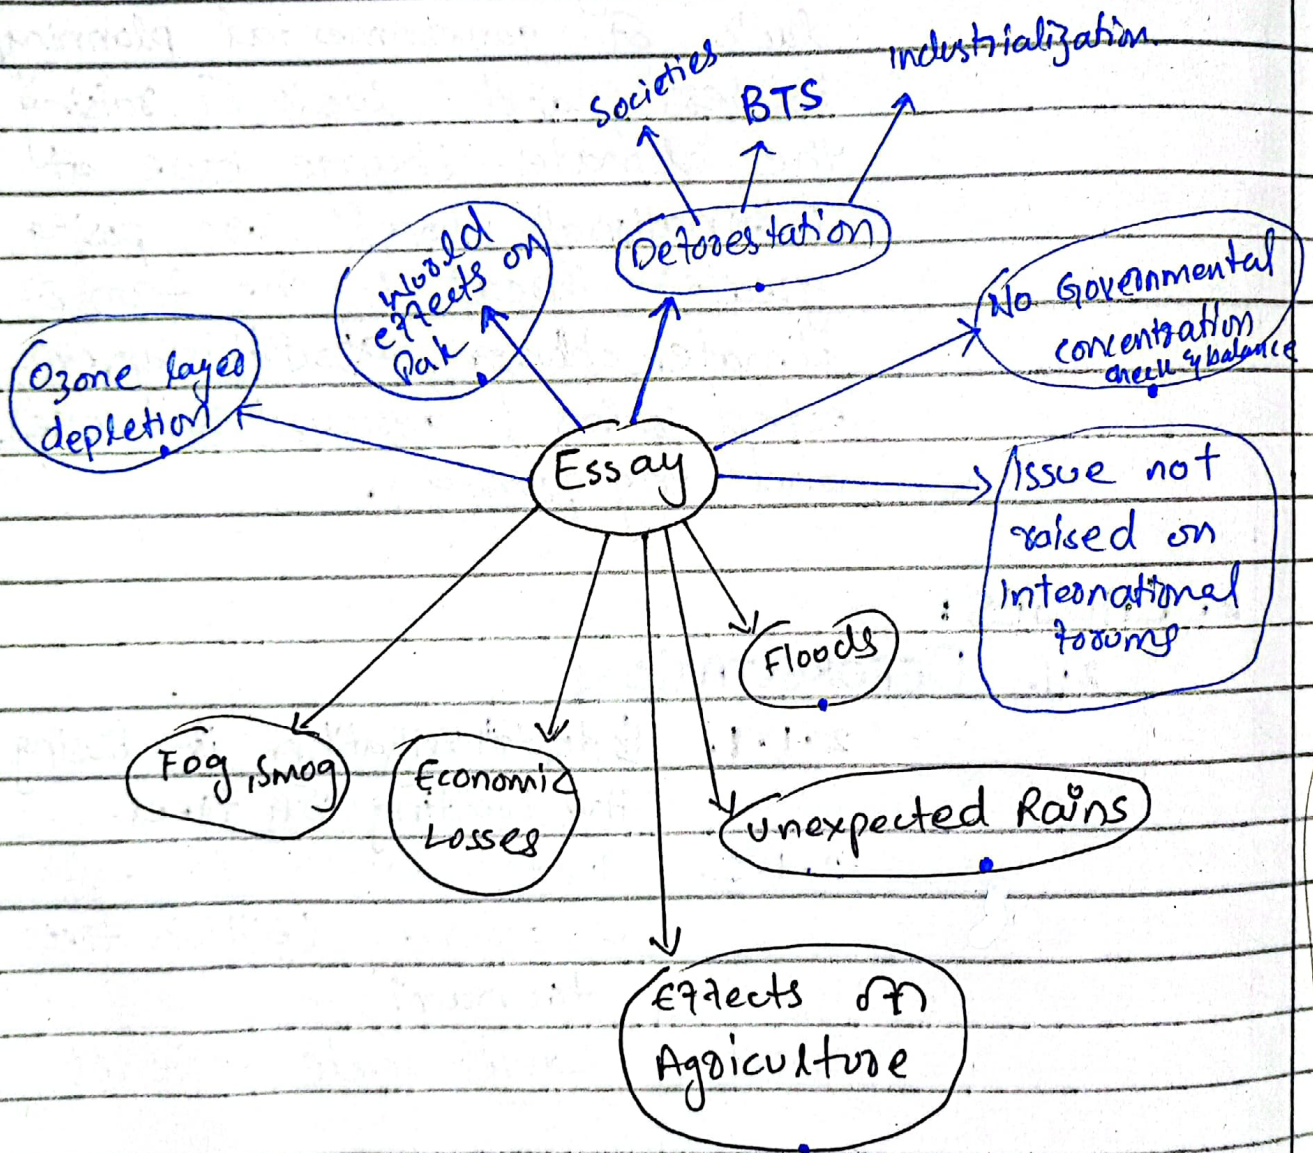 Societies
BTS
industrialization.
World
effects on
Pak
Deforestation
No Governmental
concentration
check & balance
Ozone layer
depletion
Essay
Issue not
raised on
International
forums
Floods
Fog, Smog
Economic
Losses
Unexpected Rains
Effects on
Agriculture